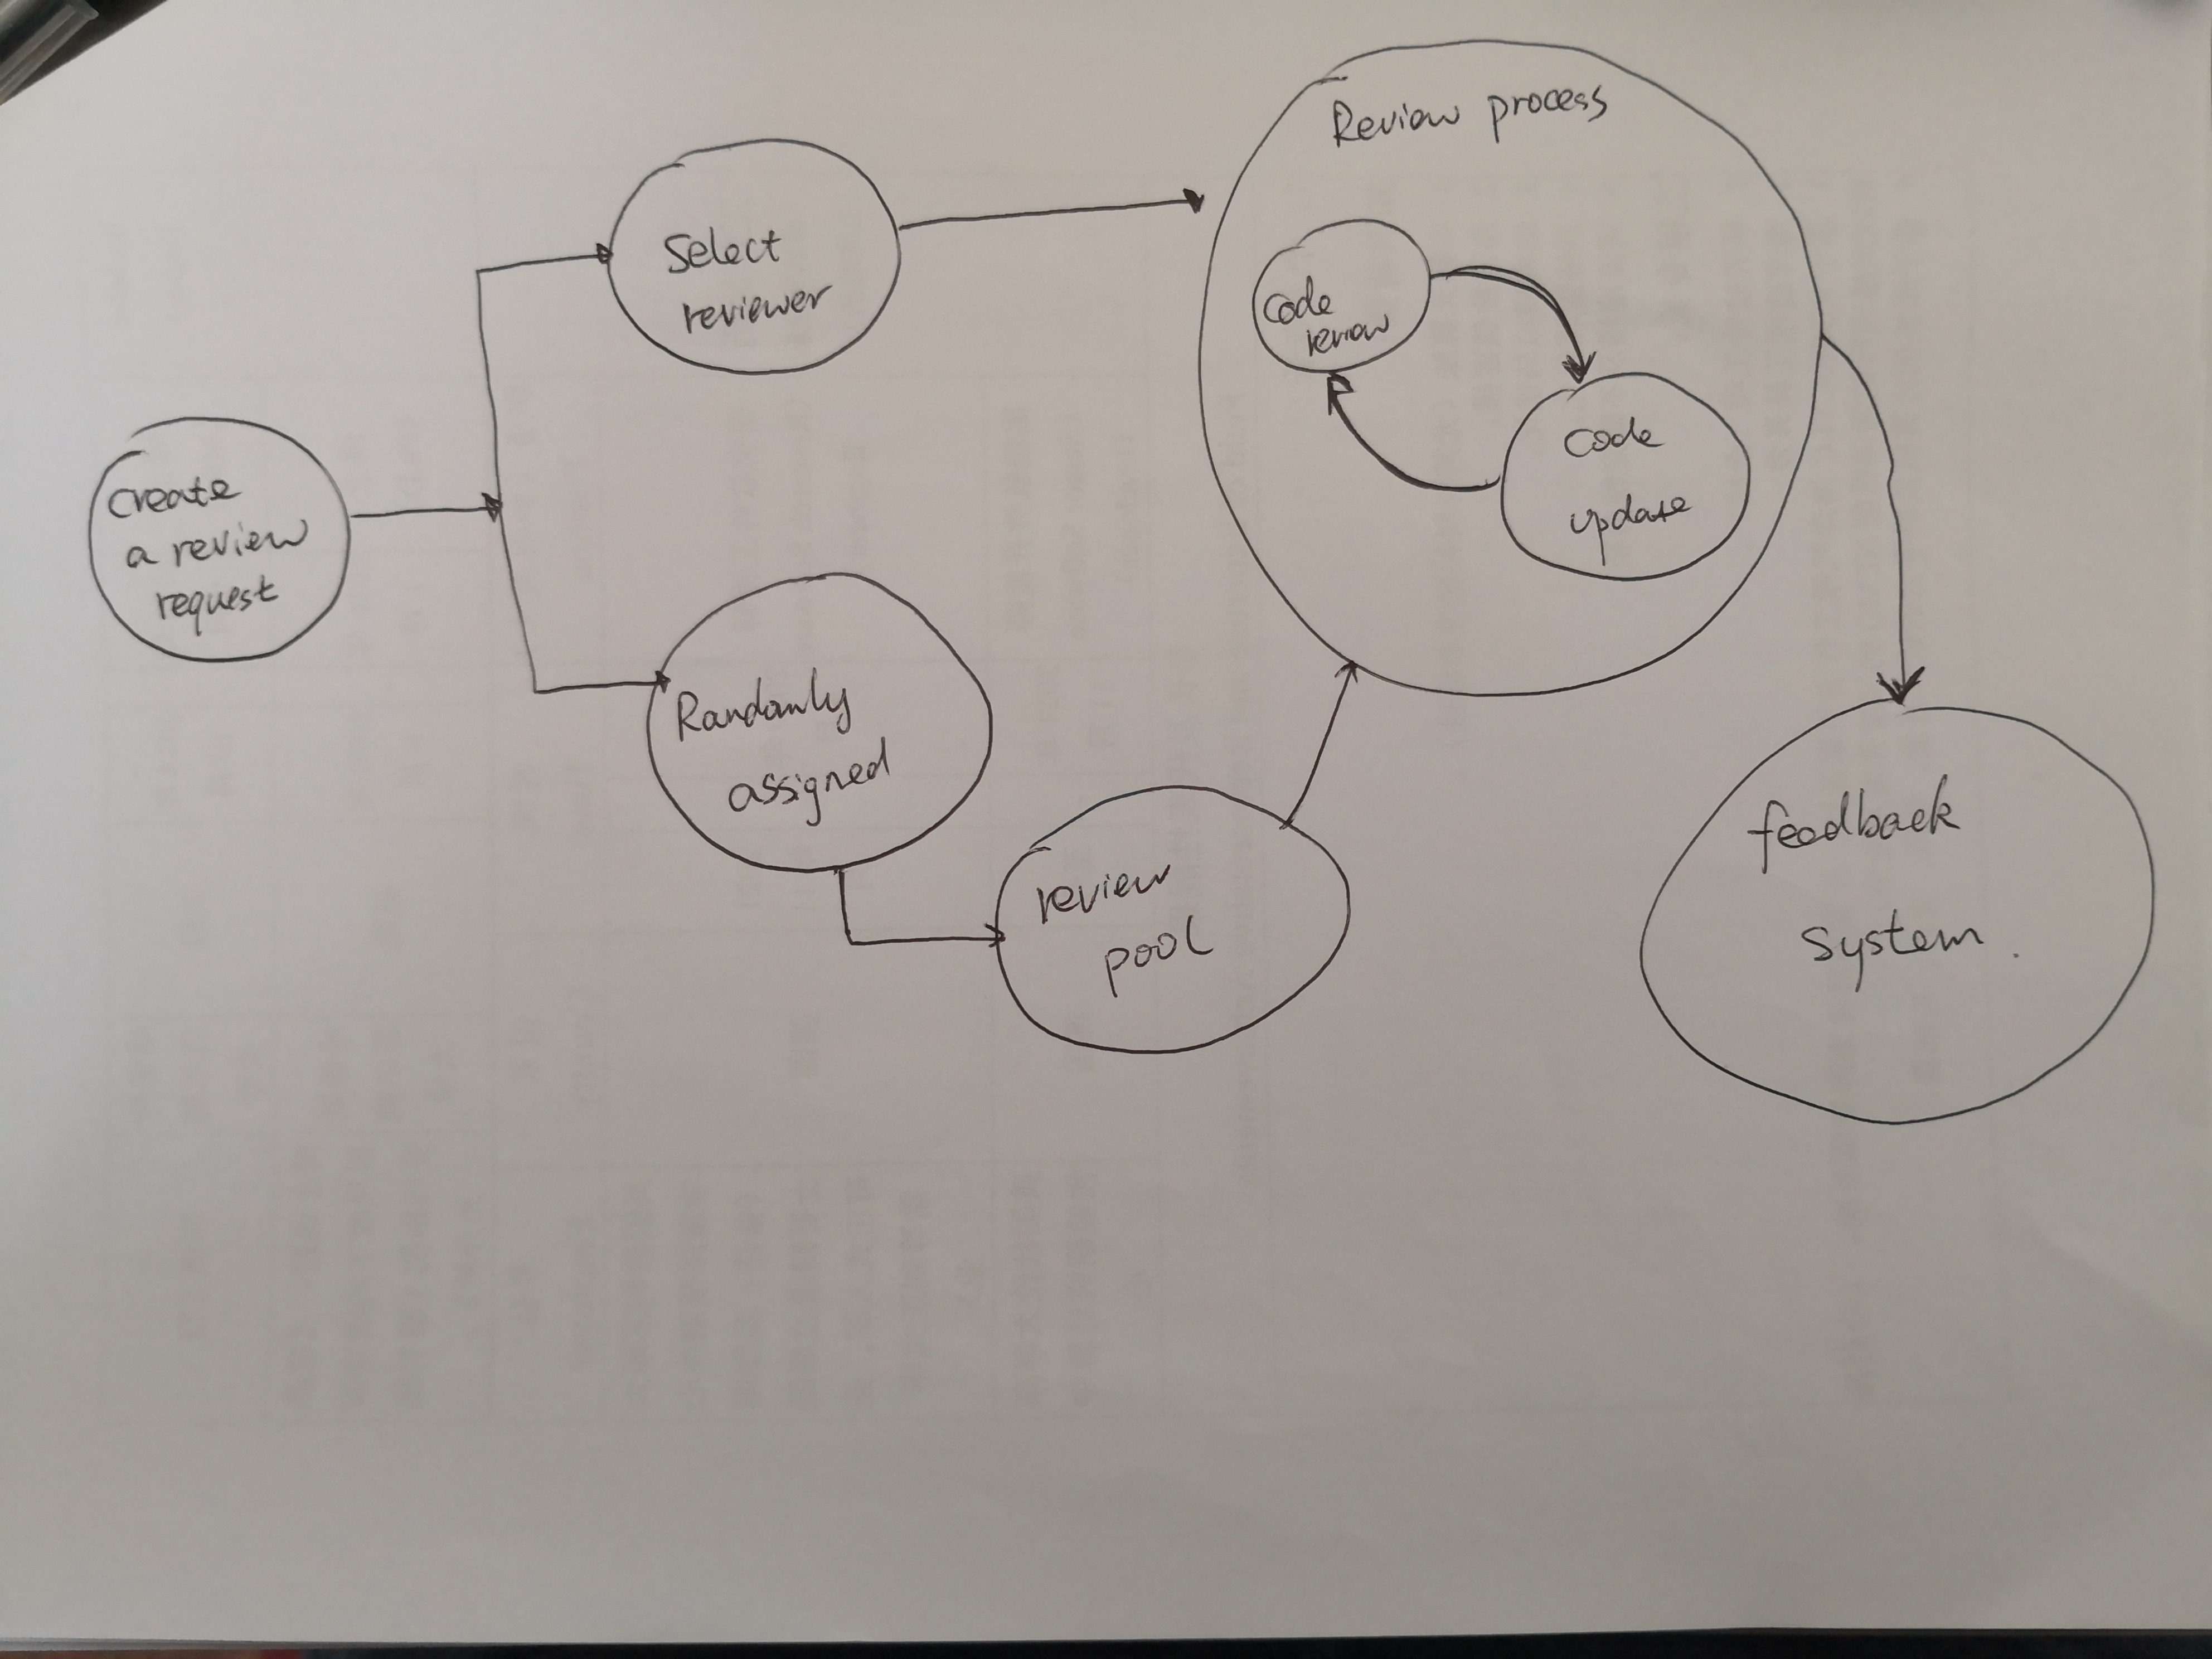 Create
a review
request
Select
reviewer
Randomly
assigned
review
pool
Review process
Code
review
Code
update
feedback
System.